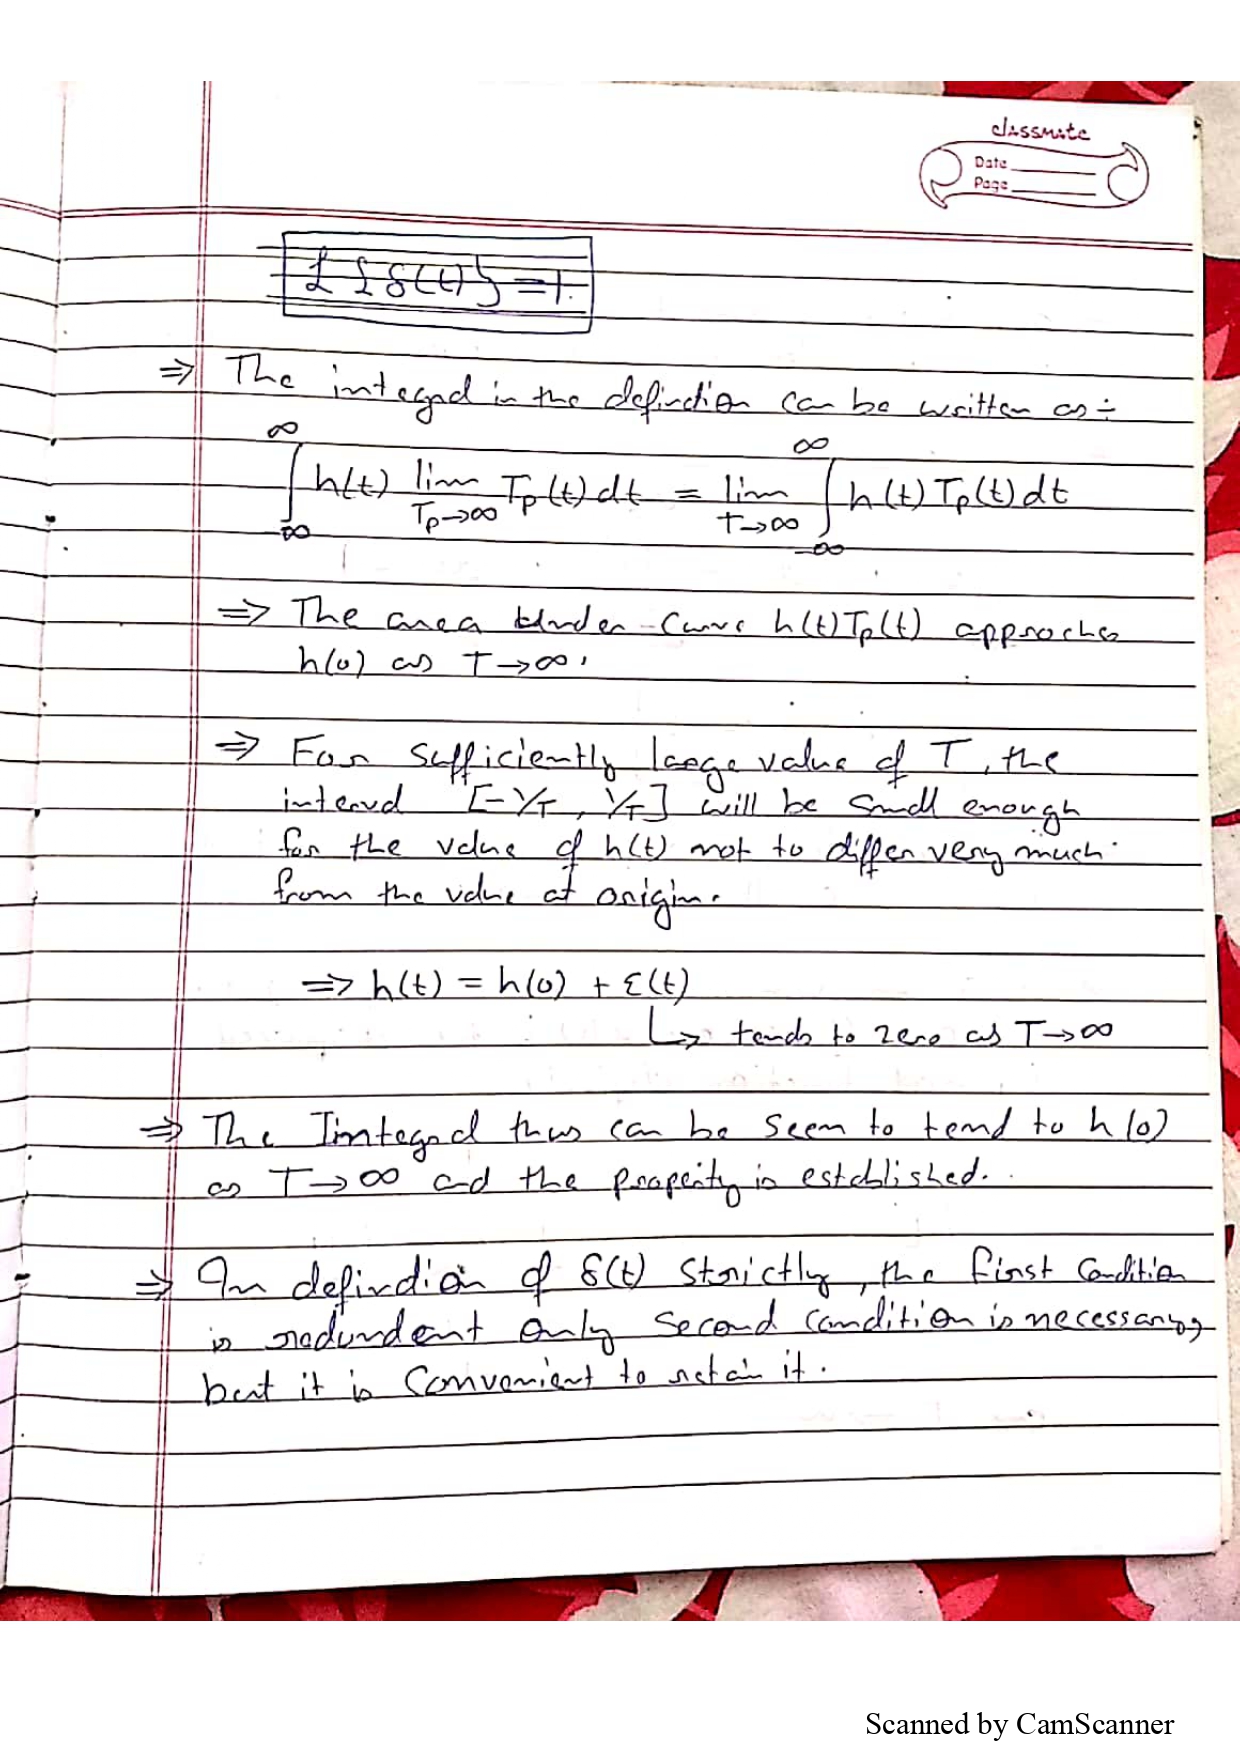 classmate
Date
Page
£ { δ(t) } = 1.
⇒ The integral in the definition can be written as ÷
∫_{-∞}^{∞} h(t) lim_{Tp→∞} Tp(t) dt = lim_{T→∞} ∫_{-∞}^{∞} h(t) Tp(t) dt
⇒ The area under curve h(t) Tp(t) approches
h(0) as T→∞.
⇒ For sufficiently large value of T, the
interval [-1/T, 1/T] will be small enough
for the value of h(t) not to differ very much
from the value at origin.
⇒ h(t) = h(0) + ε(t)
↳ tends to zero as T→∞
⇒ The Integral thus can be seen to tend to h(0)
as T→∞ and the property is established.
⇒ In definition of δ(t) strictly, the first condition
is redundent only second condition is necessary,
but it is convenient to retain it.
Scanned by CamScanner